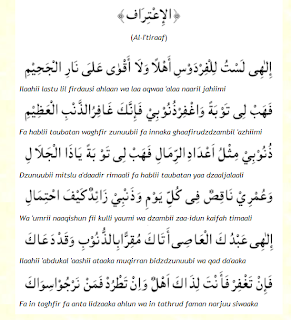 ﴿الإِعْتِرَاف﴾
(Al-I'tiraaf)
إِلٰهِى لَسْتُ لِلْفِرْدَوْسِ أَهْلًا وَلَا أَقْوَى عَلَى نَارِ الْجَحِيْمِ
Ilaahii lastu lil firdausi ahlaan wa laa aqwaa 'alaa naaril jahiimi
فَهَبْ لِى تَوْبَةً وَاغْفِرْ ذُنُوْبِيْ فَإِنَّكَ غَافِرُ الذَّنْبِ الْعَظِيْمِ
Fa hablii taubatan waghfir zunuubii fa innaka ghaafirudzdzambil 'azhiimi
ذُنُوْبِيْ مِثْلُ أَعْدَادِ الرِّمَالِ فَهَبْ لِى تَوْ بَةً يَاذَا الْجَلَالِ
Dzunuubii mitslu a'daadir rimaali fa hablii taubatan yaa dzaaljalaali
وَعُمْرِيْ نَاقِصٌ فِى كُلِّ يَوْمٍ وَذَنْبِيْ زَائِدٌ كَيْفَ احْتِمَالِ
Wa 'umrii naaqishun fii kulli yaumi wa dzambii zaa-idun kaifah timaali
إِلٰهِى عَبْدُكَ الْعَاصِى أَتَاكَ مُقِرًّا بِالذُّنُوْبِ وَقَدْ دَعَاكَ
Ilaahii 'abdukal 'aashii ataaka muqirran bidzdzunuubi wa qad da'aaka
فَإِنْ تَغْفِرْ فَأَنْتَ لِذَاكَ أَهْلٌ وَإِنْ تَطْرُدْ فَمَنْ نَرْجُوْ سِوَاكَ
Fa in taghfir fa anta lidzaaka ahlun wa in tathrud faman narjuu siwaaka